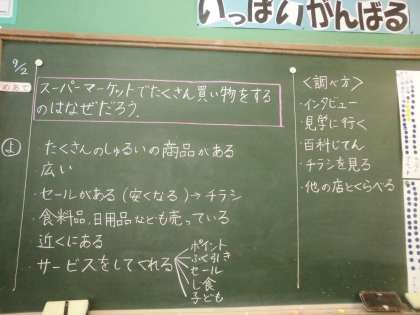 いっぱいがんばる
9/2
めあて
スーパーマーケットでたくさん買い物をする
のはなぜだろう。
よ
たくさんのしゅるいの商品がある
広い
・セールがある(安くなる)→チラシ
・食料品、日用品なども売っている
近くにある
サービスをしてくれる
ポイント
ふく引き
セール
し食
子ども
<調べ方>
・インタビュー
・見学に行く
・百科じてん
・チラシを見る
・他の店とくらべる